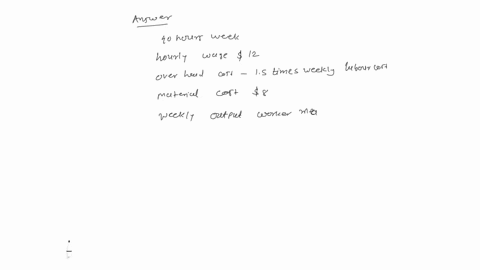 Answer
40 hours week
hourly wage $12
over head cost - 1.5 times weekly labour cost
material cost $8
weekly output worker